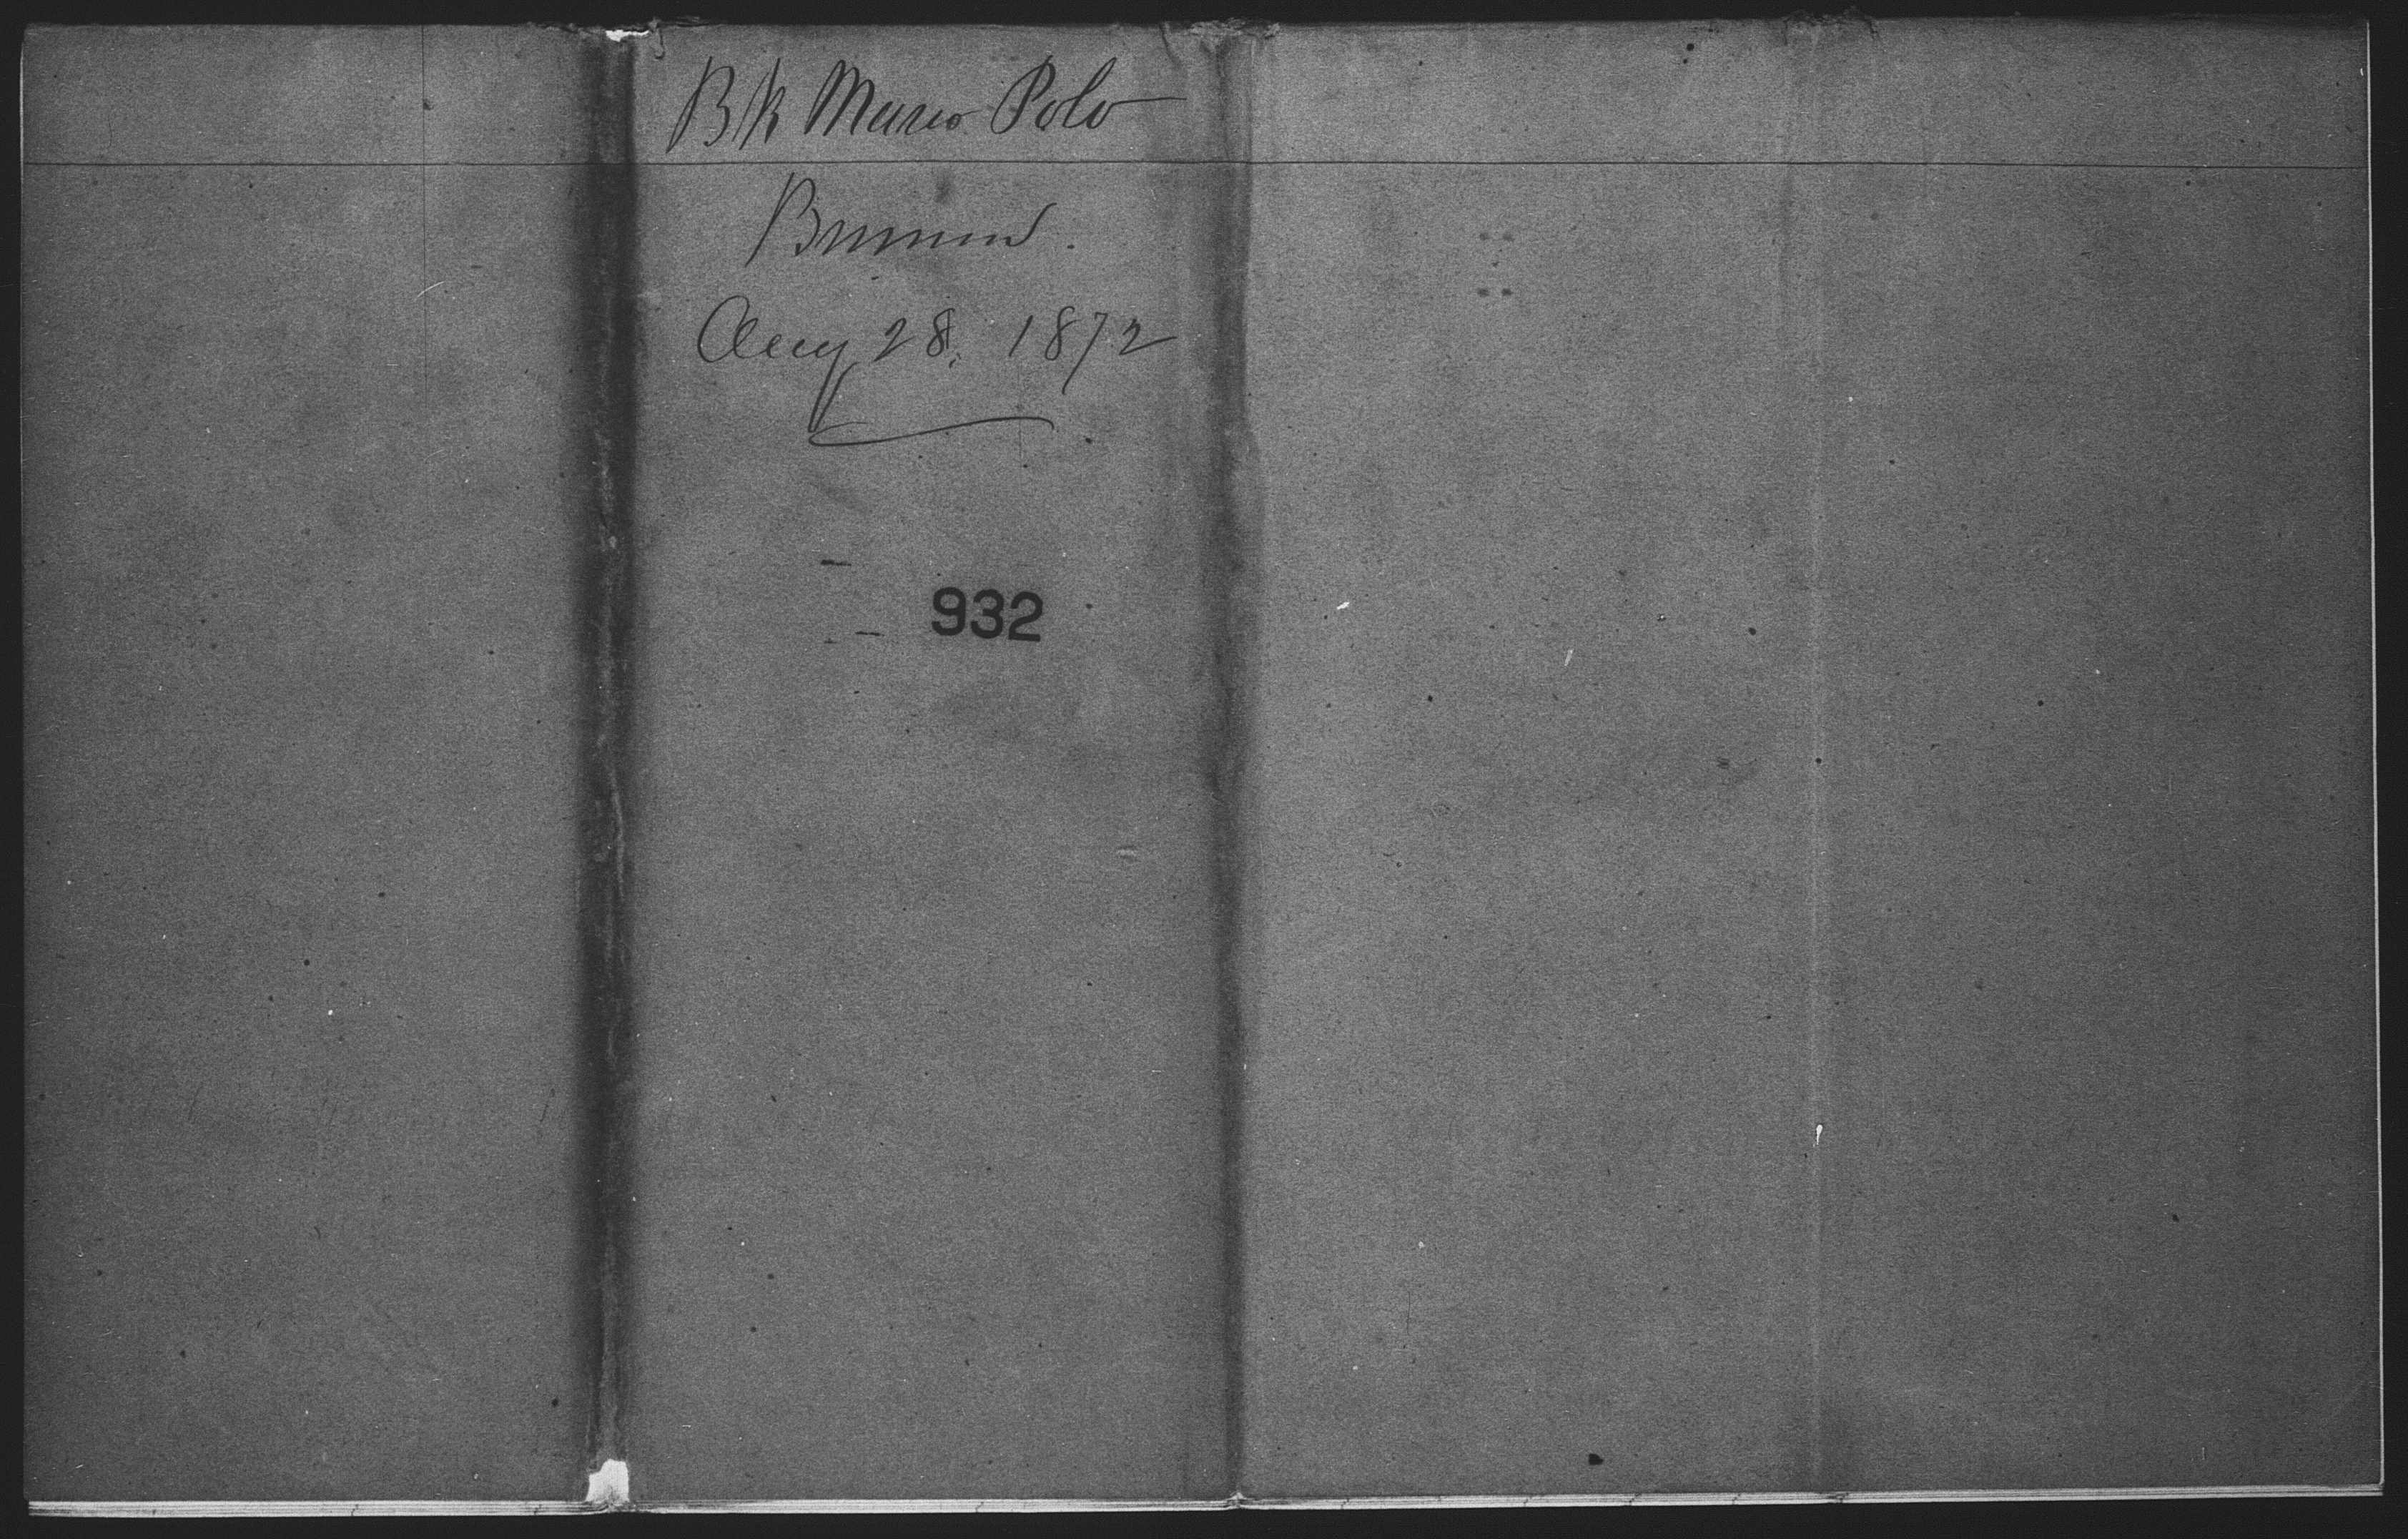 Bk Marco Polo
Bremen.
Aug 28, 1872
932